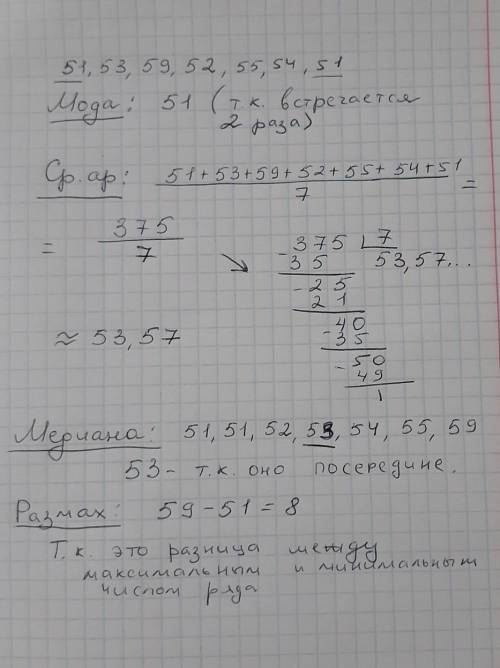 51, 53, 59, 52, 55, 54, 51
Мода: 51 (т.к. встречается
2 раза)
Ср. ар: 51+53+59+52+55+54+51
7
=
= 375
7
≈ 53,57
- 375 7
35 53,57...
- 25
21
- 40
35
- 50
49
1
Медиана: 51, 51, 52, 53, 54, 55, 59
53 - т.к. оно посередине.
Размах: 59 - 51 = 8
Т.к. это разница между
максимальным и минимальным
числом ряда